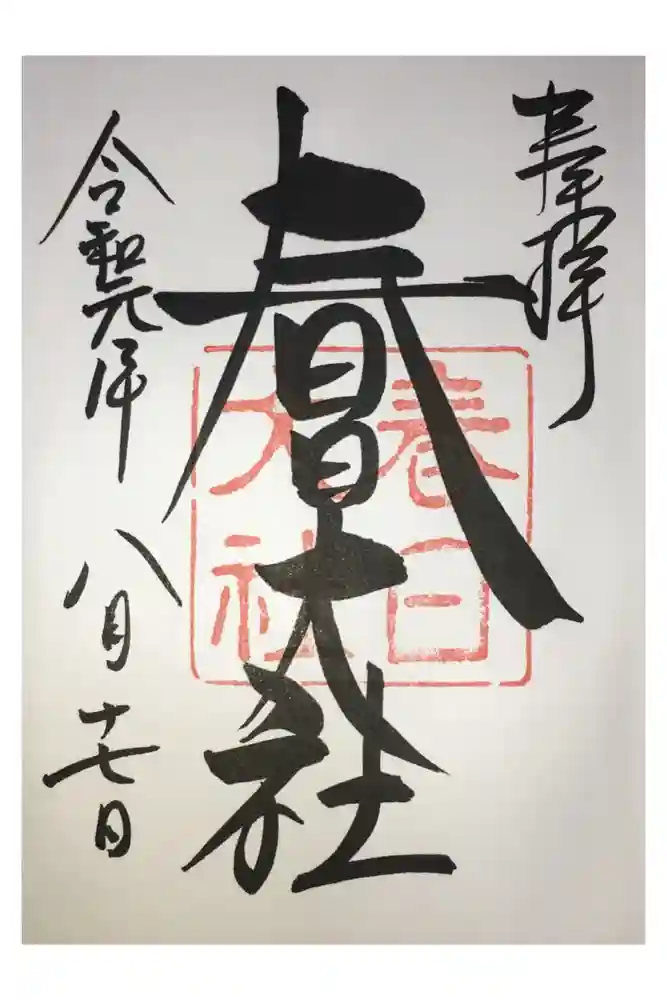 奉拝
春日大社
春日大社
令和元年八月十七日